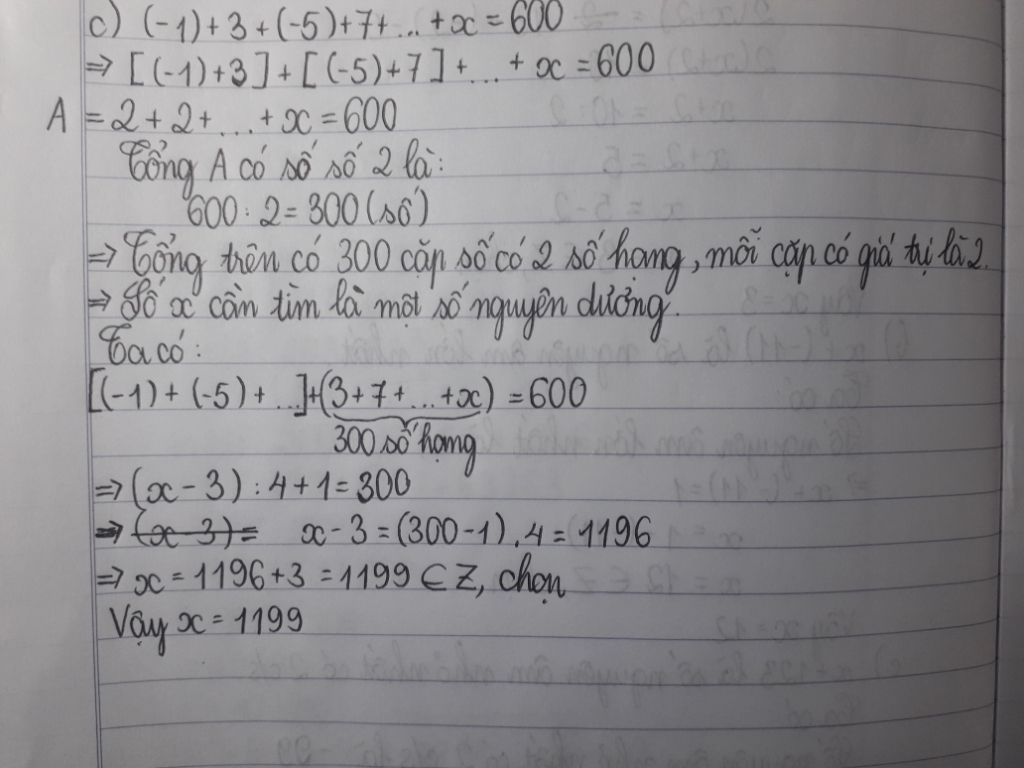 c) (-1)+3+(-5)+7+...+x=600
⇒ [(-1)+3]+[(-5)+7]+...+x=600
A = 2+2+...+x=600
Tổng A có số số 2 là:
600:2=300(số)
⇒ Tổng trên có 300 cặp số có 2 số hạng, mỗi cặp có giá trị là 2.
⇒ Số x cần tìm là một số nguyên dương.
Ta có:
[(-1)+(-5)+...]+(3+7+...+x)=600
300 số hạng
⇒ (x-3):4+1=300
⇒ (x-3)= x-3=(300-1).4=1196
⇒ x=1196+3=1199∈Z, chọn
Vậy x=1199